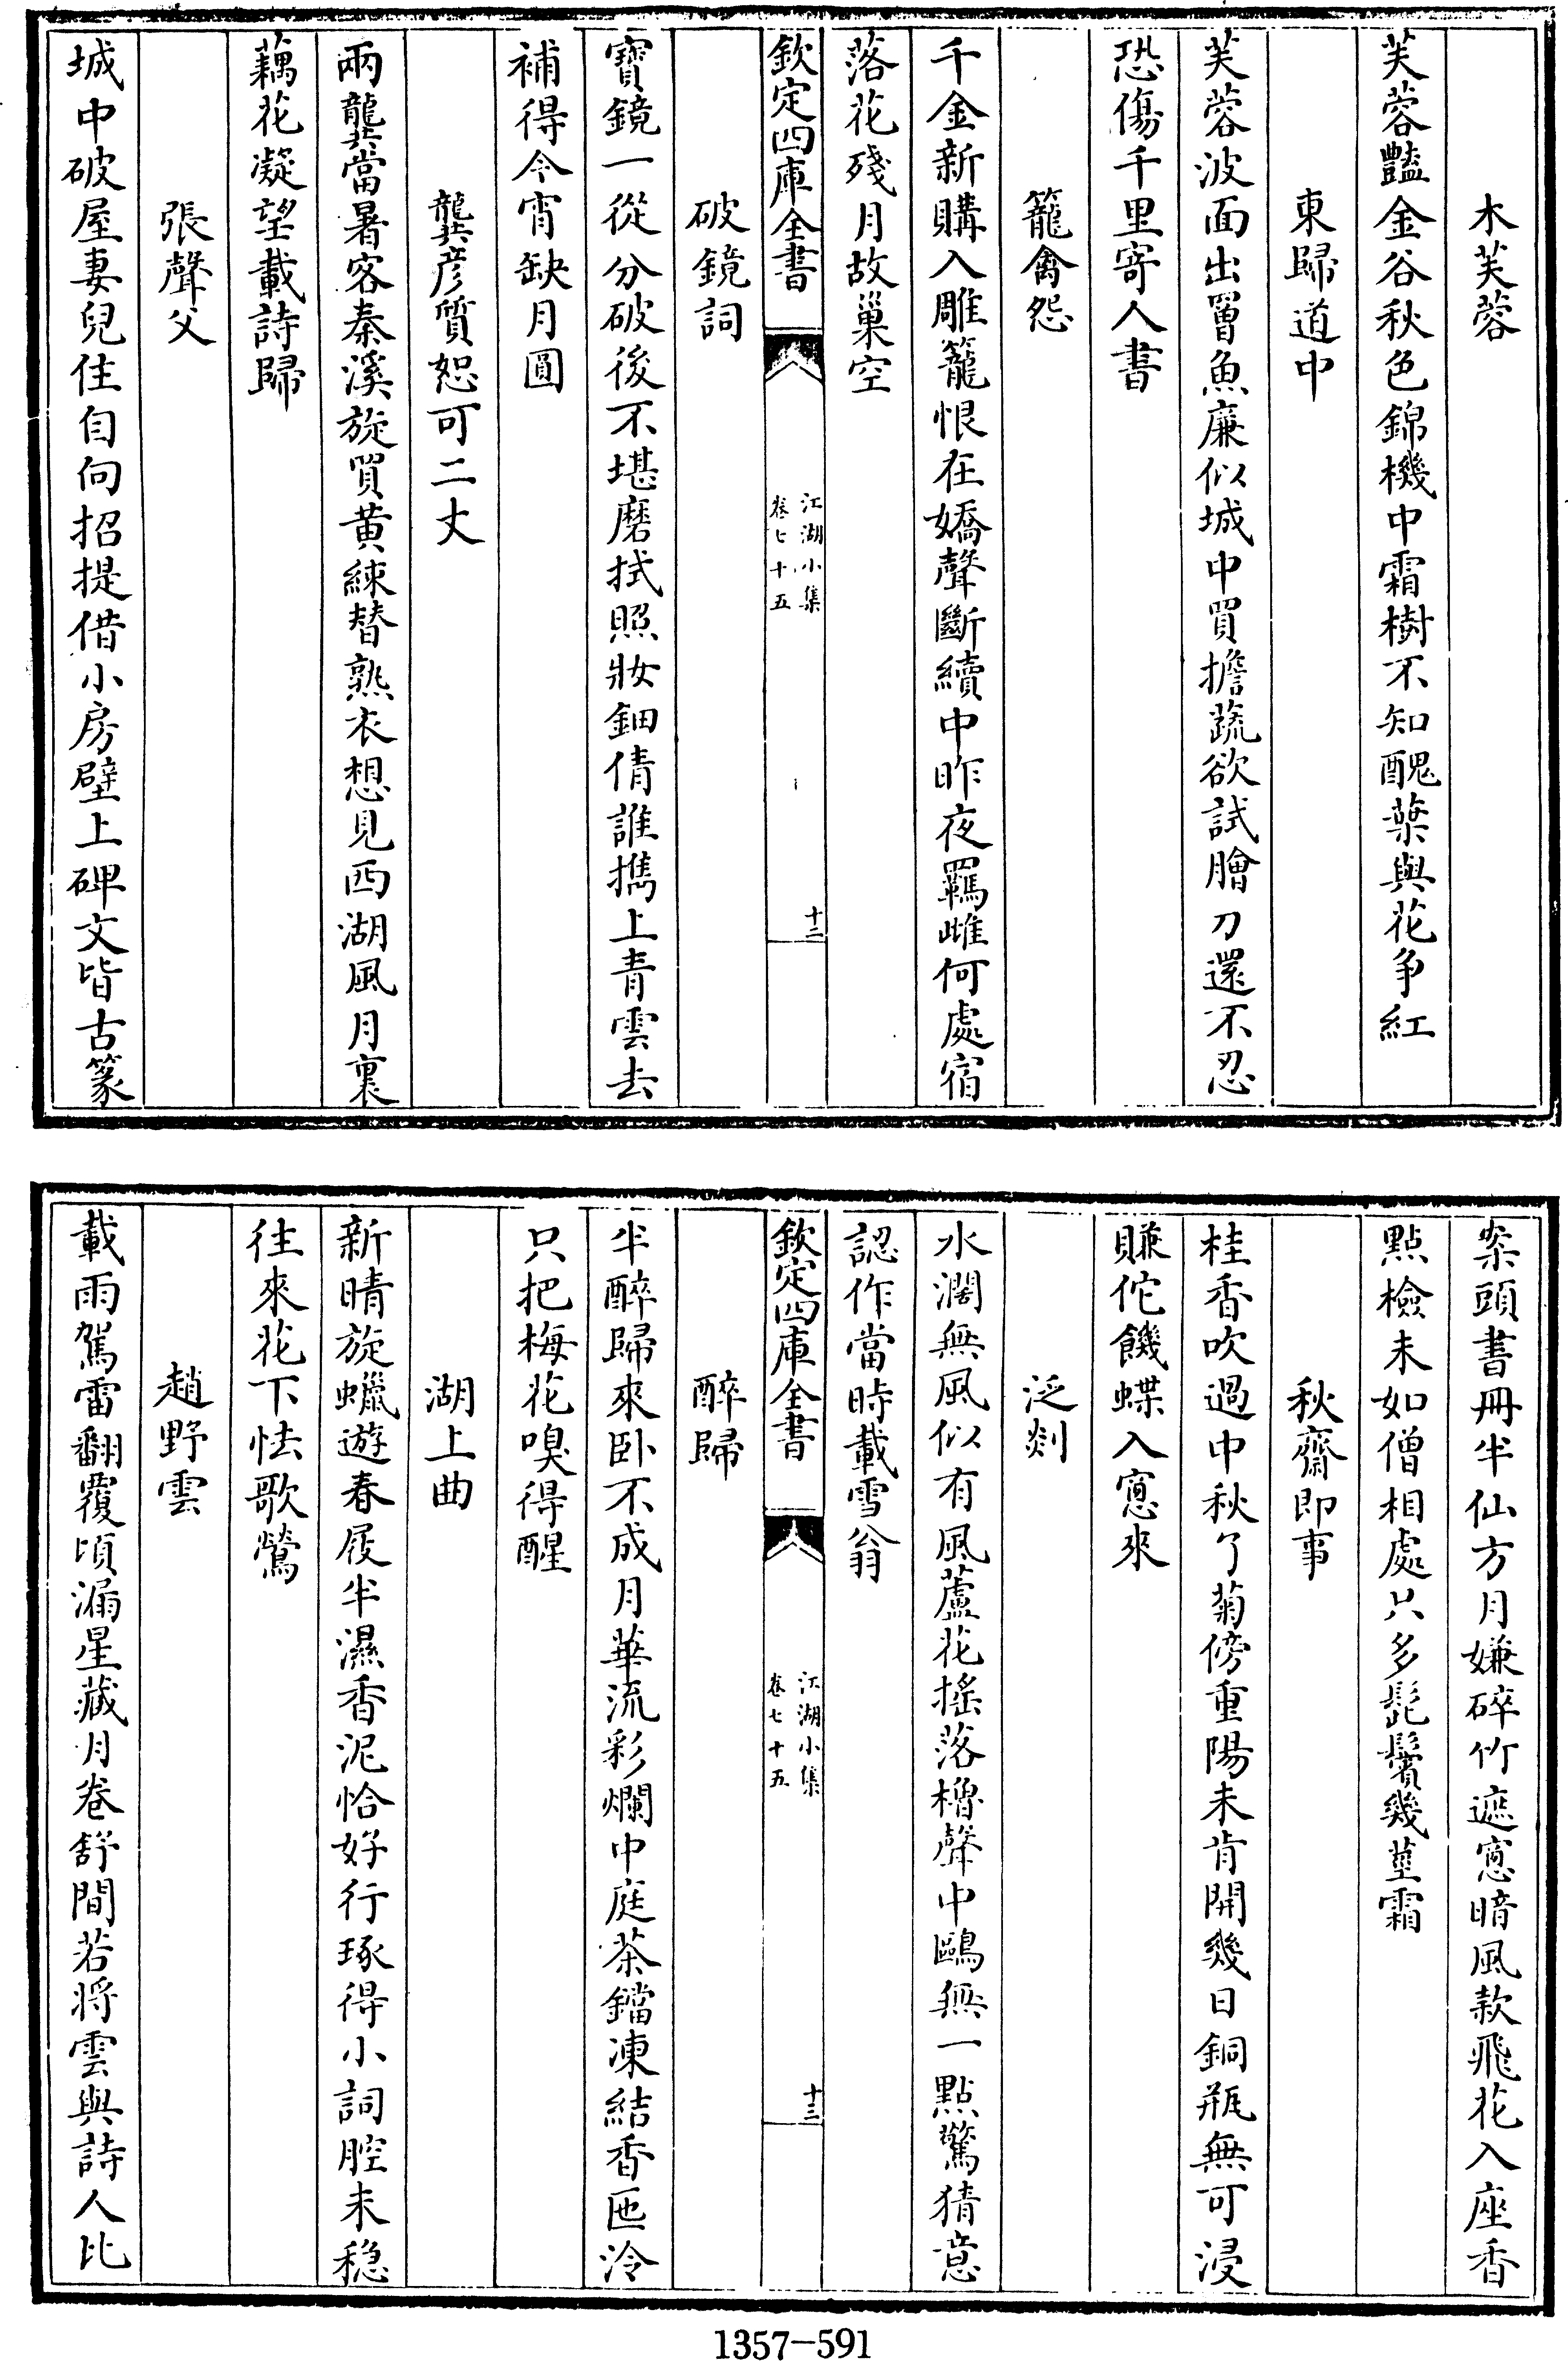 木芙蓉
芙蓉豔金谷秋色錦機中霜樹不知醜葉與花争紅
東歸道中
芙蓉波面出罾魚廉似城中買擔蔬欲試膾刀還不忍
恐傷千里寄人書
籠禽怨
千金新購入雕籠恨在嬌聲斷續中昨夜羈雌何處宿
落花殘月故巢空
欽定四庫全書
江湖小集
卷七十五
十二
破鏡詞
寶鏡一從分破後不堪磨拭照妝鈿倩誰擕上青雲去
補得今宵缺月圓
龔彦質恕可二丈
兩龔當暑客秦溪旋買黄練替熟衣想見西湖風月裏
藕花凝望載詩歸
張聲父
城中破屋妻兒住自向招提借小房壁上碑文皆古篆
案頭書冊半仙方月嫌碎竹遮窻暗風款飛花入座香
點檢未如僧相處只多髭鬢幾莖霜
秋齋即事
桂香吹過中秋了菊傍重陽未肯開幾日銅瓶無可浸
賺佗饑蝶入窻來
泛剡
水濶無風似有風蘆花摇落櫓聲中鷗無一點驚猜意
認作當時載雪翁
欽定四庫全書
江湖小集
卷七十五
十三
醉歸
半醉歸來卧不成月華流彩爛中庭茶鐺凍結香匜冷
只把梅花嗅得醒
湖上曲
新晴旋蠟遊春屐半濕香泥恰好行琢得小詞腔未稳
往來花下怯歌鶯
趙野雲
載雨駕雷翻覆頃漏星藏月卷舒間若將雲與詩人比
1357-591